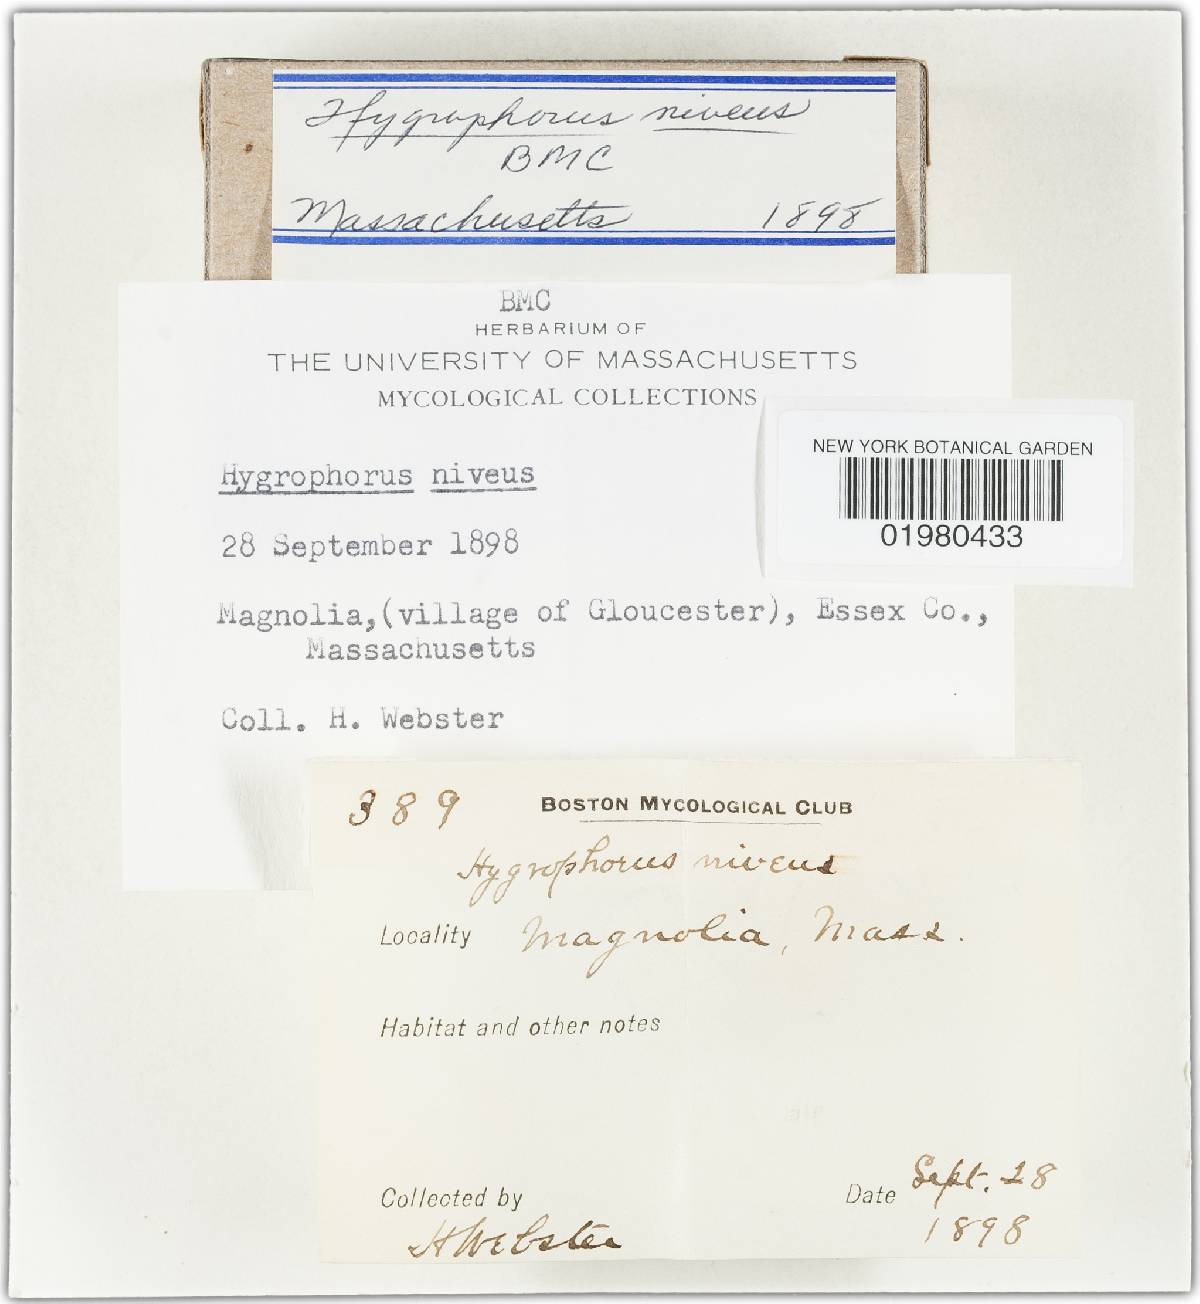 Hygrophorus niveus
BMC
Massachusetts 1898
BMC
HERBARIUM OF
THE UNIVERSITY OF MASSACHUSETTS
MYCOLOGICAL COLLECTIONS
NEW YORK BOTANICAL GARDEN
01980433
Hygrophorus niveus
28 September 1898
Magnolia,(village of Gloucester), Essex Co.,
Massachusetts
Coll. H. Webster
389 BOSTON MYCOLOGICAL CLUB
Hygrophorus niveus
Locality Magnolia, Mass.
Habitat and other notes
Collected by Date Sept. 28
H Webster 1898